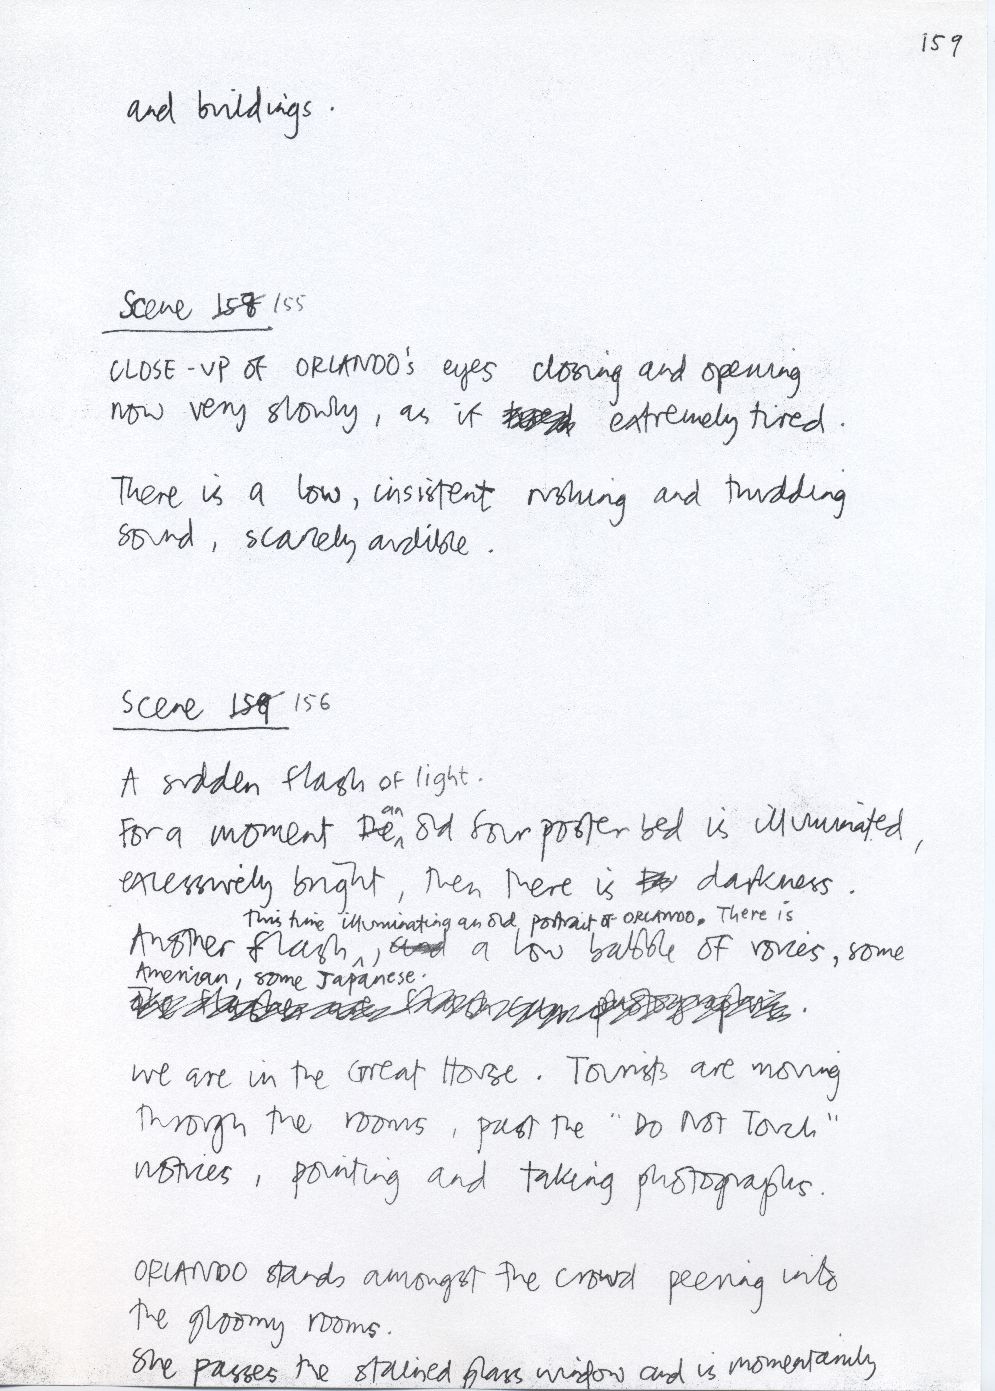 159
and buildings.
Scene 158 155
CLOSE-UP OF ORLANDO's eyes closing and opening
now very slowly, as if extremely tired.
There is a low, insistent rushing and thudding
sound, scarcely audible.
Scene 159 156
A sudden flash of light.
an
For a moment The old four poster bed is illuminated,
excessively bright, then there is darkness.
This time illuminating an old portrait of ORLANDO. There is
Another flash, a low babble of voices, some
American, some Japanese.
We are in the Great House. Tourists are moving
through the rooms, past the "Do Not Touch"
notices, pointing and taking photographs.
ORLANDO stands amongst the crowd peering into
the gloomy rooms.
She passes the stained glass window and is momentarily